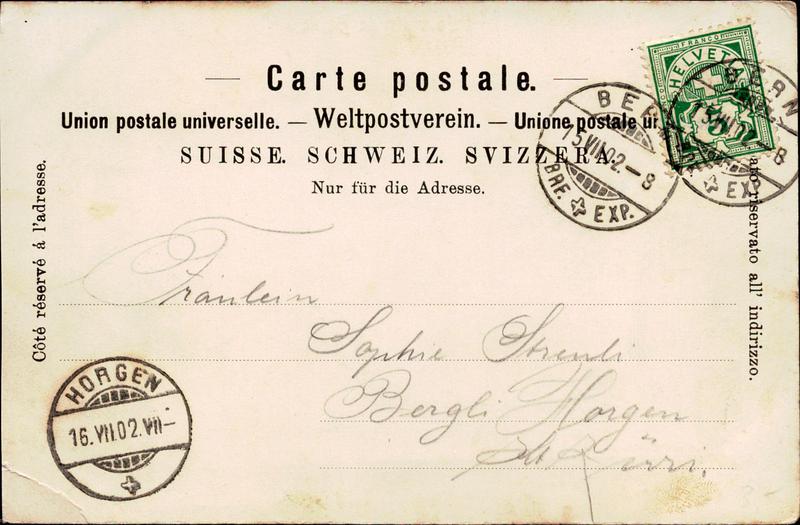 Carte postale.
Union postale universelle. — Weltpostverein. — Unione postale un
SUISSE. SCHWEIZ. SVIZZERA.
Nur für die Adresse.
Côté réservé à l'adresse.
ato riservato all' indirizzo.
FRANCO
HELVETIA
5
BERN
15.VII.02.-8
BRF. EXP.
BERN
8
EXP.
Fräulein
Sophie Streuli
Bergli Horgen
HORGEN
16.VII.02.VII-